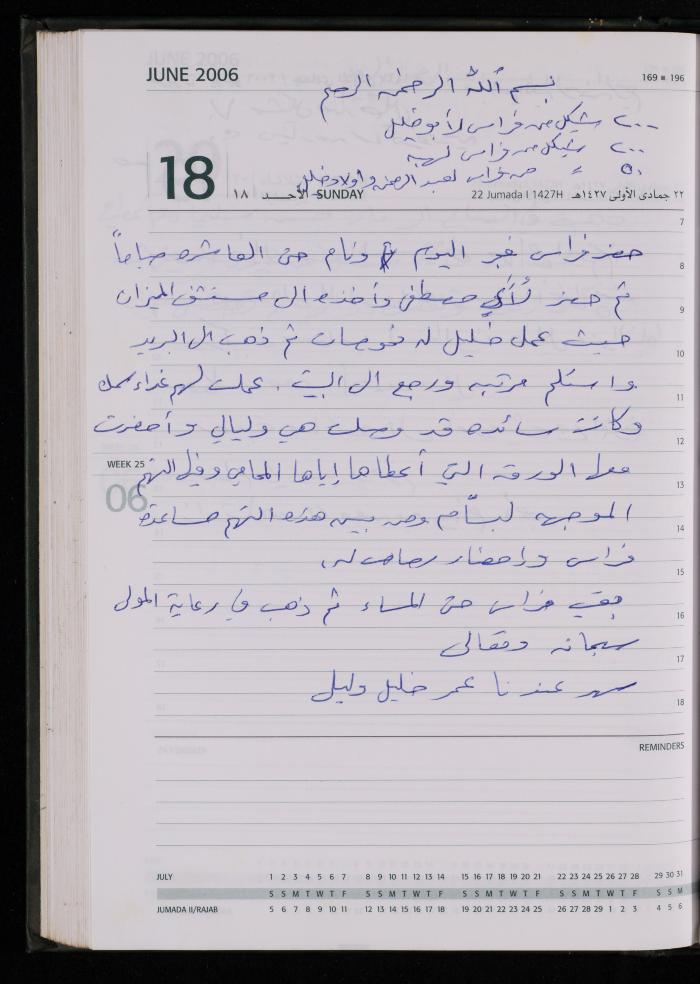 JUNE 2006
169 ■ 196
بسم الله الرحمن الرحيم
٢٠٠٠ شيكل من فراس لأبو خليل
٢٠٠ شيكل من فراس لهبه
٥٠ = من فراس لعبد الرحمن وأولاد خليل
18
١٨ الأحــد SUNDAY
22 Jumada I 1427H ٢٢ جمادى الأولى ١٤٢٧هـ
7
حضر فراس فجر اليوم ونام حتى العاشره صباحاً
8
ثم حضر لؤي مصطفى وأخذه الى مستشفى الميزان
9
حيث عمل خليل له فحوصات ثم ذهب الى البريد
10
واستلم مرتبه ورجع الى البيت . عملت لهم غداء سمك
11
وكانت سائده قد وصلت هي وليالي وأحضرت
12
معها الورقه التي أعطاها إياها المحامي وفيها التهم
WEEK 25
13
06
الموجهه لبسام ومن بين هذه التهم مساعدة
14
فراس واحضار رصاص له .
15
بقي فراس حتى المساء ثم ذهب في رعاية المولى
16
سبحانه وتعالى
17
سهر عندنا عمر خليل وليل
18
REMINDERS
JULY 1 2 3 4 5 6 7 8 9 10 11 12 13 14 15 16 17 18 19 20 21 22 23 24 25 26 27 28 29 30 31
S S M T W T F S S M T W T F S S M T W T F S S M T W T F S S M
JUMADA II/RAJAB 5 6 7 8 9 10 11 12 13 14 15 16 17 18 19 20 21 22 23 24 25 26 27 28 29 1 2 3 4 5 6